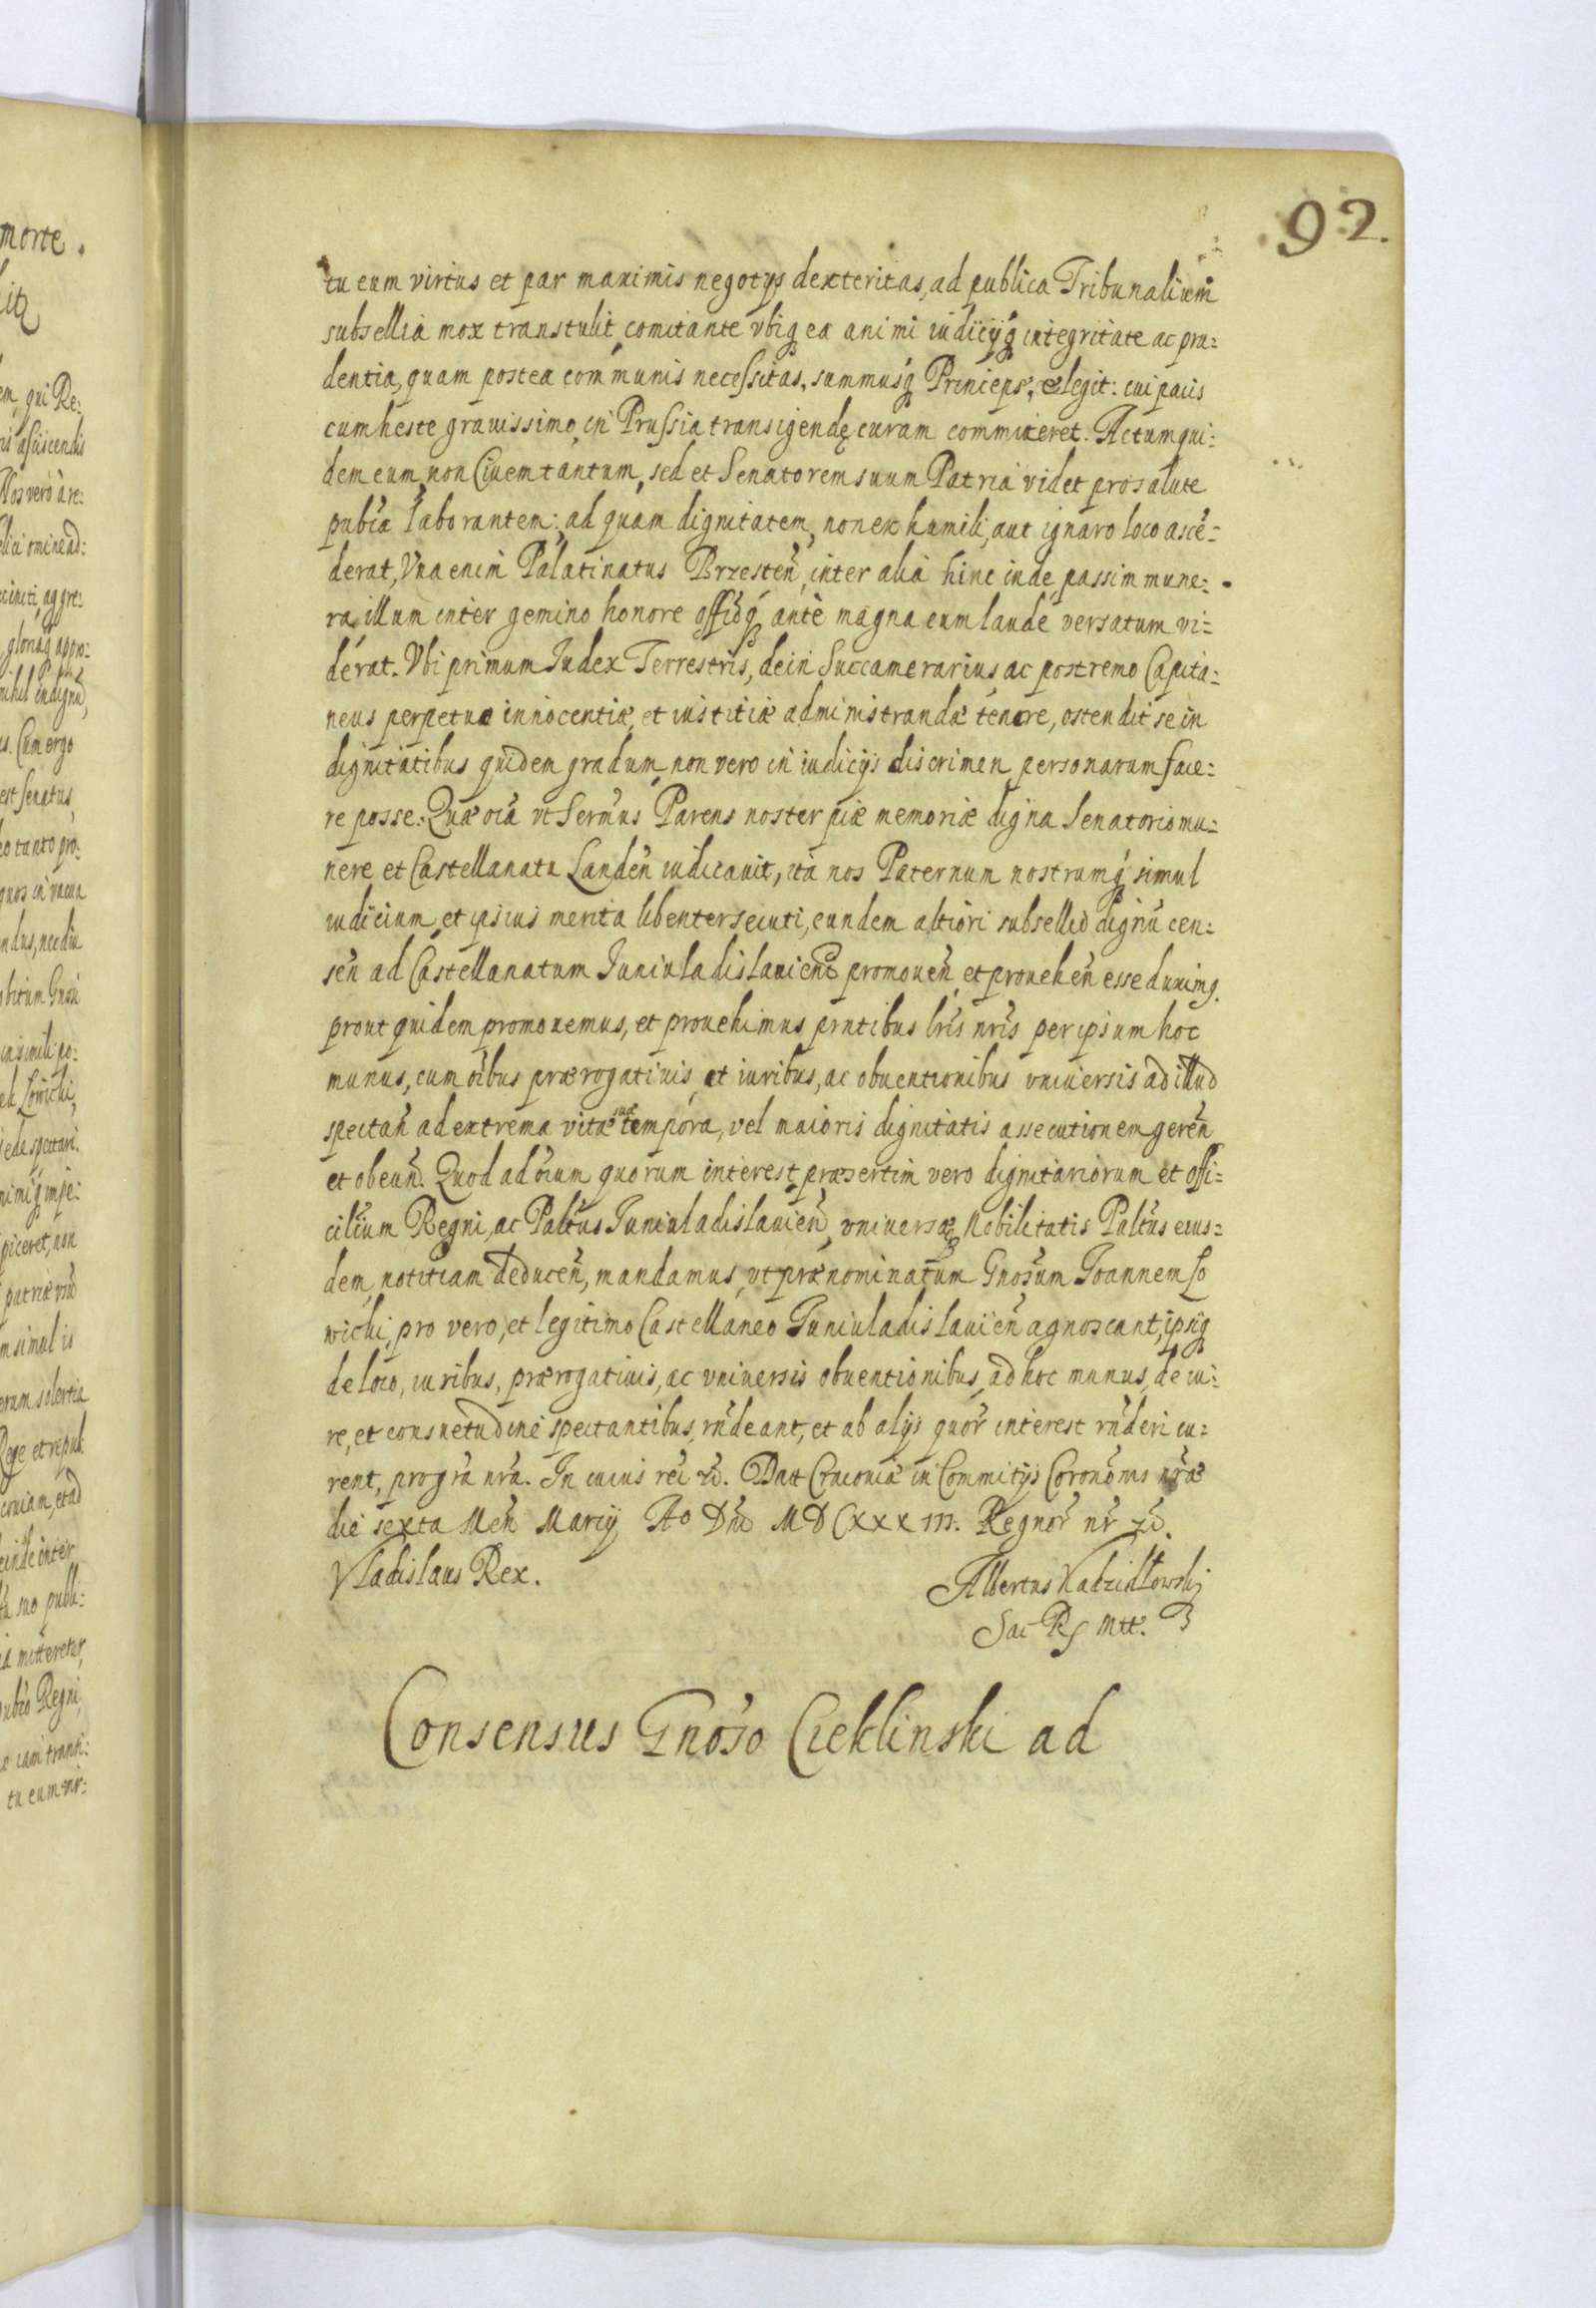 92.
tu eum virtus et par maximis negotys dexteritas, ad publica Tribunalium
subsellia mox transtulit, comitante vbiq ea animi iudicijq integritate ac pru:
dentia, quam postea communis necessitas, summusq Princeps, elegit: cui pacis
cum hoste grauissimo in Prussia transigendę curam committeret. Actum qui:
dem eum, non Ciuem tantum, sed et Senatorem suum Patria videt pro salute
publa laborantem: ad quam dignitatem, non ex humili, aut ignaro loco ascē:
derat, Vna enim Palatinatus Brzesten, inter alia hinc inde passim mune:
ra, illum inter gemino honore offioq ante magna cum laude versatum vi:
derat. Vbi primum Iudex Terrestris, dein Succamerarius, ac postremo Capita:
neus perpetuæ innocentiæ, et iustitiæ administrandæ tenore, ostendit se in
dignitatibus quidem gradum, non vero in iudicijs discrimen personarum face:
re posse. Quæ oia vt Sermus Parens noster piæ memoriæ digna Senatorio mu:
nere et Castellanatu Landen iudicauit, ita nos Paternum nostrumq simul
iudicium, et ipsius merita libenter secuti, eundem altiori subsellio dignū cen:
sen ad Castellanatum Iuniuladislauien promouen, et prouehen esse duximq.
prout quidem promouemus, et prouehimus prntibus lris nris per ipsum hoc
munus, cum oibus prærogatiuis, et iuribus, ac obuentionibus vniuersis ad illud
spectan ad extrema vitæ suæ tempora, vel maioris dignitatis assecutionem geren
et obeun. Quod ad oium quorum interest, præsertim vero dignitariorum et offi:
cilium Regni, ac Paltus Iuniuladislauien, vniuersæq Nobilitatis Paltus eius:
dem, notitiam deducen, mandamus, vt prænominatum Gnosum Ioannem Lo
wicki, pro vero, et legitimo Castellaneo Iuniuladislauien agnoscant, ipsiq
de loco, iuribus, prærogatiuis, ac vniuersis obuentionibus, ad hoc munus, de iu:
re, et consuetudine spectantibus, rndeant, et ab alijs quor interest rnderi cu:
rent, pro gra nra. In cuius rei &. Datt Cracouiæ in Commitijs Coronōnis nræ
die sexta Men Marcij Ao Dni MDCXXXIII. Regnor nr &.
Vladislaus Rex.
Albertus Kadzidłowski
Sac Rs Mtt. S
Consensus Gnoso Cieklinski ad